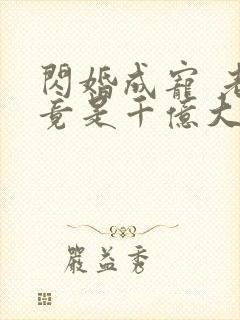 閃婚成寵 老
竟是千億大
嚴益秀